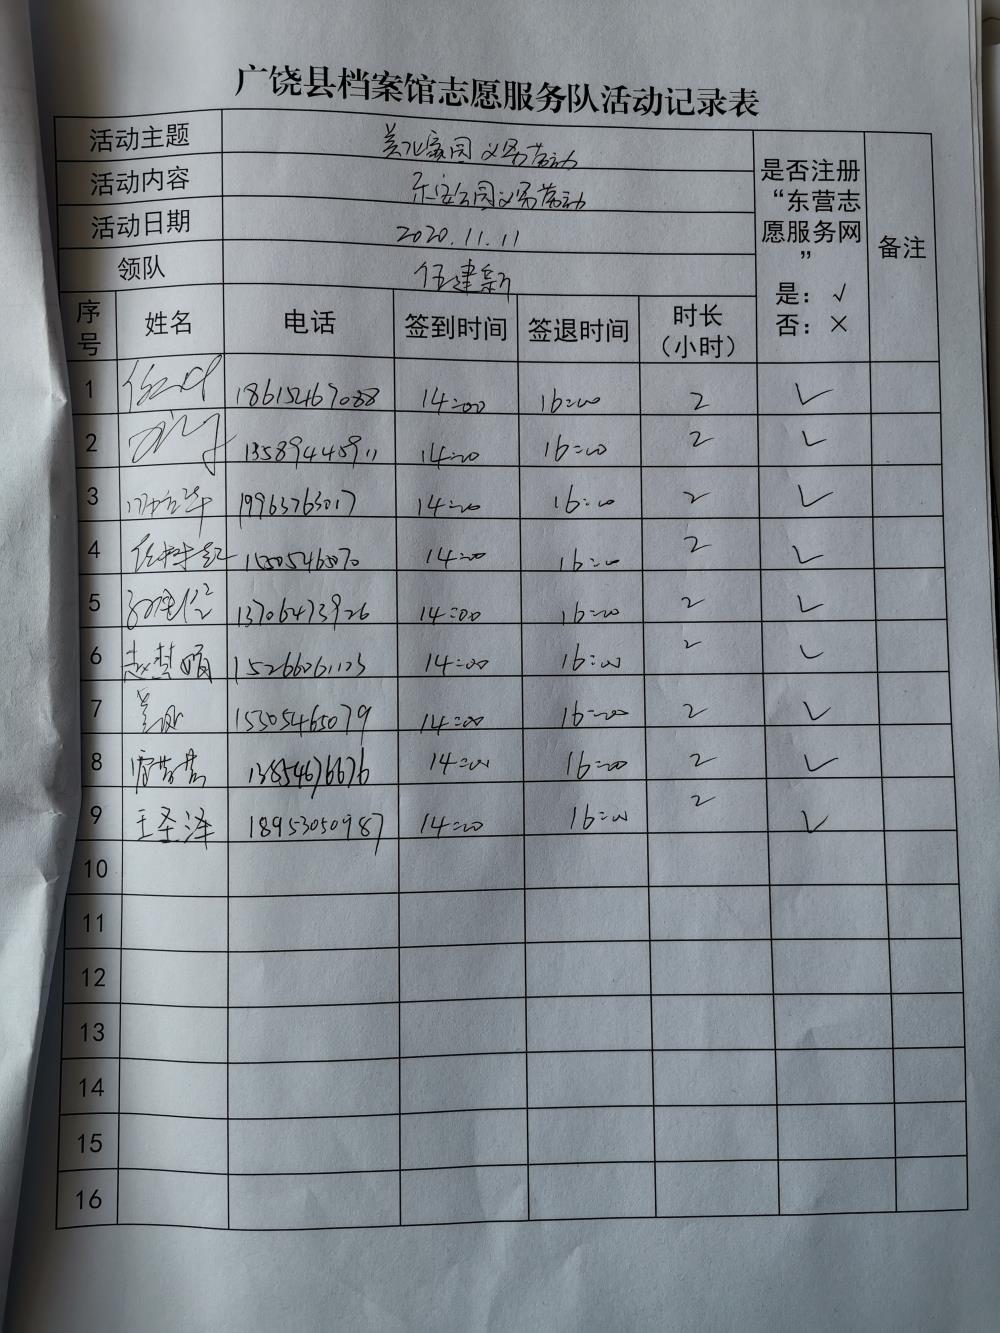 广饶县档案馆志愿服务队活动记录表
活动主题 美化家园 义务劳动
活动内容 乐安公园义务劳动
活动日期 2020.11.11
领队 伍建新
是否注册
“东营志
愿服务网
”
是：√
否：×
备注
序号 姓名 电话 签到时间 签退时间 时长（小时）
1 18615467088 14:00 16:00 2 √
2 14:00 16:00 2 √
3 19963763017 14:00 16:00 2 √
4 14:00 16:00 2 √
5 13706473926 14:00 16:00 2 √
6 赵梦娟 15266061123 14:00 16:00 2 √
7 15305465079 14:00 16:00 2 √
8 13854676676 14:00 16:00 2 √
9 王圣泽 18953050987 14:00 16:00 2 √
10
11
12
13
14
15
16